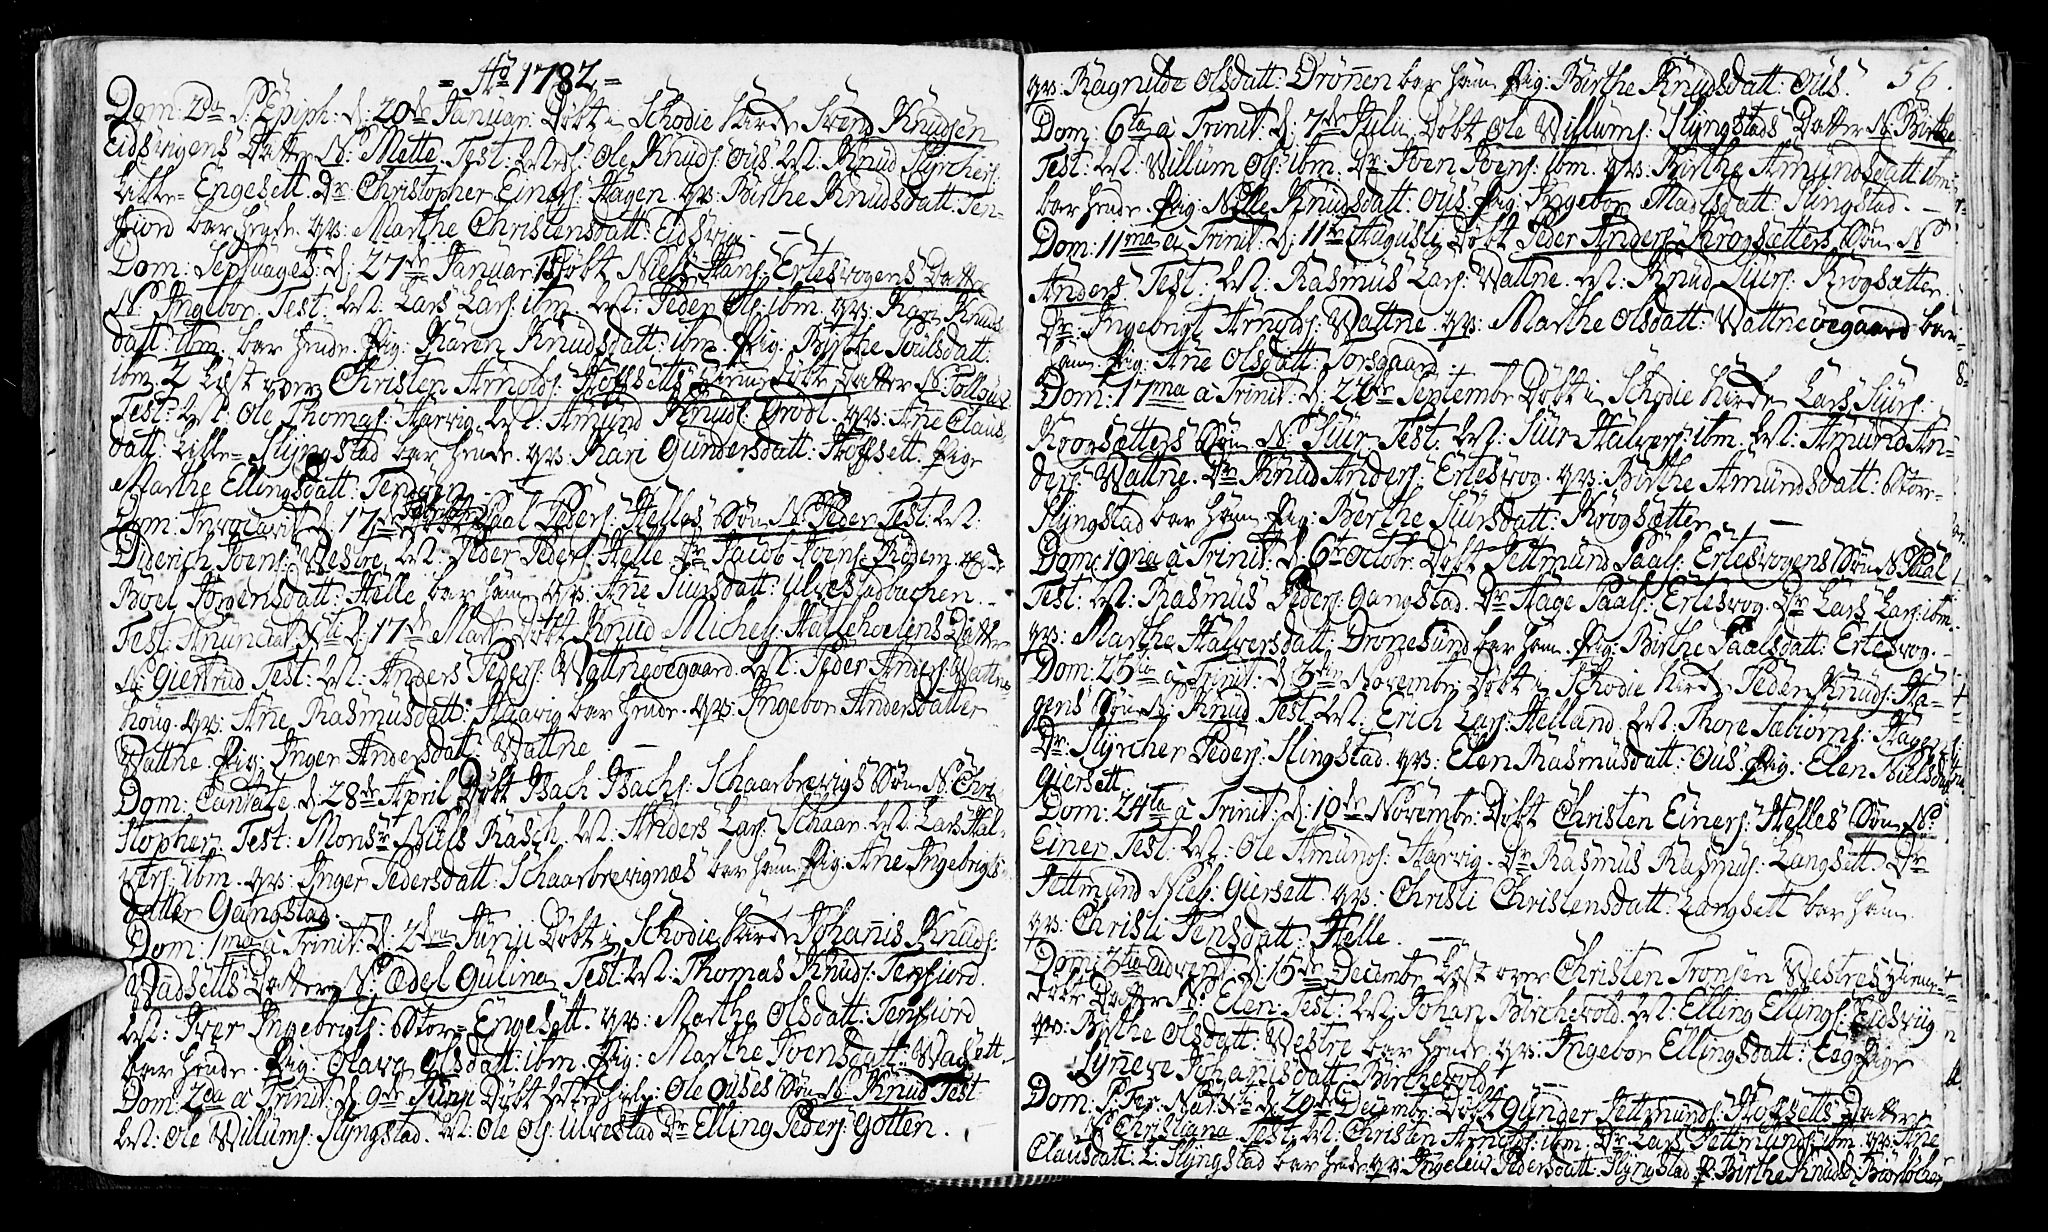 = Aō 1782 =
Dom: 2da p. Epiph: d: 20de Januar: Döbt i Schodie Kircke Svend Knudsen
Eidsvigens Datter N: Mette. Test: Ole Knuds: Ous Knud Syrchers:
Lille= Engesett. Dr: Christopher Einers: Hagen. qv: Birthe Knudsdatt: Ten-
fiord bar hende. qv: Marthe Christensdatt: Eidsvig.
Dom: Septuages: d: 27de Januar Döbt Niels Hans: Ertesvogens Datter
N: Ingebor. Test: Lars Lars: ibm. Peder Ols: ibm. qv: Kari Knuds
datt: ibm. bar hende. Pig: Karen Knudsdatt: ibm. Pig: Birthe Poulsdatt:
ibm. 2 Læst over Christen Arnolds: Hofsetts Datter N: Tollaug
Test: Ole Thomas: Harvig Amund Knuds: Grödt. qv: Ane Claus
datt: Lille= Slyngstad bar hende. qv: Kari Gundersdatt: Hofsett. Pige
Marthe Ellingsdatt: Tenfiord.
Dom: Invocavit d: 17de Februar Döbt Paal Peders: Helles Sön N: Peder Test:
Diderich Joens: Westre. Peder Peders: Helle. Dr: Jacob Joens: Rödem.
Boel Jörgensdatt: Helle bar ham qv: Ane Siursdatt: Ulvestadbachen.
Fest: Anunciat: d: 17de Mart: Döbt Knud Michels: Hatlehoelens Datter
N: Giertrud Test: Anders Peders: Wattneoegaard. Peder Anders: Wattne
houg. qv: Ane Rasmusdatt: Harvig bar hende. qv: Ingebor Andersdatter
Wattne. Pig: Inger Andersdatt: Wattne
Dom: Cantate. d: 28de April Döbt Isach Isachs: Schaarbrevigs Sön N: Chri-
stopher Test: Monsr Niels Rasch. Anders Lars: Schaar. Lars Hal-
vers: ibm. qv: Inger Pedersdatt: Schaarbrevignæs bar ham Pig: Ane Ingebrigts
datter Gangstad.
Dom: 1ma a Trinit: d: 2den Junii Döbt i Schodie Kircke Johanis Knuds:
Wadsetts Datter N: Ædel Gulina Test: Thomas Knuds: Tenfiord.
Iver Ingebrigts: Stor= Engesett. qv: Marthe Olsdatt: Tenfiord
bar hende. Pig: Olava Olsdatt: ibm. Pig: Marthe Ivensdatt: Wadsett
Dom: 2da a Trinit: d: 9de Junii Döbt Ole Ouses Sön N: Knud Test:
Ole Willums: Slyngstad. Ole Ols: Ulvestad Dr: Elling Peders: Gotten.
56.
qv: Ragnilde Olsdatt: Dronen bar ham Pig: Birthe Knudsdatt: Ous.
Dom: 6ta a Trinit: d: 7de Julii Döbt Ole Willums: Slyngstads Datter N: Birthe
Test: Willum Ols: ibm. Dr: Iven Ivens: ibm. qv: Birthe Amundsdatt: ibm:
bar hende. Pig: Nille Knudsdatt: Ous. Pig: Ingebor Madsdatt: Slingstad.
Dom: 11ma a Trinit: d: 11te Augusti Döbt Peder Anders: Krogsætters Sön N:
Anders Test: Rasmus Lars: Wattne. Knud Siurs: Krogsætter.
Dr: Ingebrigt Arnolds: Wattne. qv: Marthe Olsdatt: Wattneoegaard bar
ham. Pig: Ane Olsdatt: Torsgaard.
Dom: 17ma a Trinit: d: 22de Septembr: Döbt i Schodie Kircke Lars Siurs:
Krogsætters Sön N: Siur Test: Siur Halvers: ibm. Amund An-
ders: Wattne. Dr: Knud Anders: Ertesvog. qv: Birthe Amundsdatt: Stor-
Slyngstad bar ham Pig: Berthe Siursdatt: Krogsætter.
Dom: 19na a Trinit: d: 6te Octobr: Döbt Jettmund Paals: Ertesvogens Sön N: Paal
Test: Rasmus Peders: Gangstad. Dr: Hage Paals: Ertesvog. Dr: Lars Lars: ibm.
qv: Marthe Halversdatt: Dronesund bar ham. Pig: Birthe Paalsdatt: Ertesvog.
Dom: 23tia a Trinit: d: 3die Novembr: Döbt i Schodie Kircke Peder Knuds: Ha-
gens Sön N: Knud Test: Erich Lars: Helland. Thore Sæbiörns: Hagen
Dr: Syrcher Peders: Slingstad. qv: Elen Rasmusdatt: Ous. Pig: Elen Nielsdatt:
Giersett.
Dom: 24ta a Trinit: d: 10de Novembr: Döbt Christen Einers: Helles Sön N:
Einer Test: Ole Amunds: Harvig. Dr: Rasmus Rasmus: Langsett. Dr:
Jettmund Niels: Giersett. qv: Christi Christensdatt: Langsett bar ham
qv: Christi Jensdatt: Helle.
Dom: 3tia Advent: d: 15de Decembr: Læst over Christen Tronsen Westres hieme-
döbte Datter N: Elen. Test: Johan Birchevold. Elling Ellings: Eidsviig.
qv: Birthe Olsdatt: Westre bar hende. qv: Ingebor Ellingsdatt: Pige
Syneve Johanisdatt: Birchevold.
Dom: d: 29de Decembr: Döbt Gunder Jettmunds: Hofsetts Datter
N: Christiana. Test: Christen Arnolds: ibm. Dr: Lars Jettmunds: ibm. qv: Ane
Clausdatt: L: Slyngstad bar hende. qv: Ingeleiv Pedersdatt: Slyngstad. P: Birthe Knudsd: